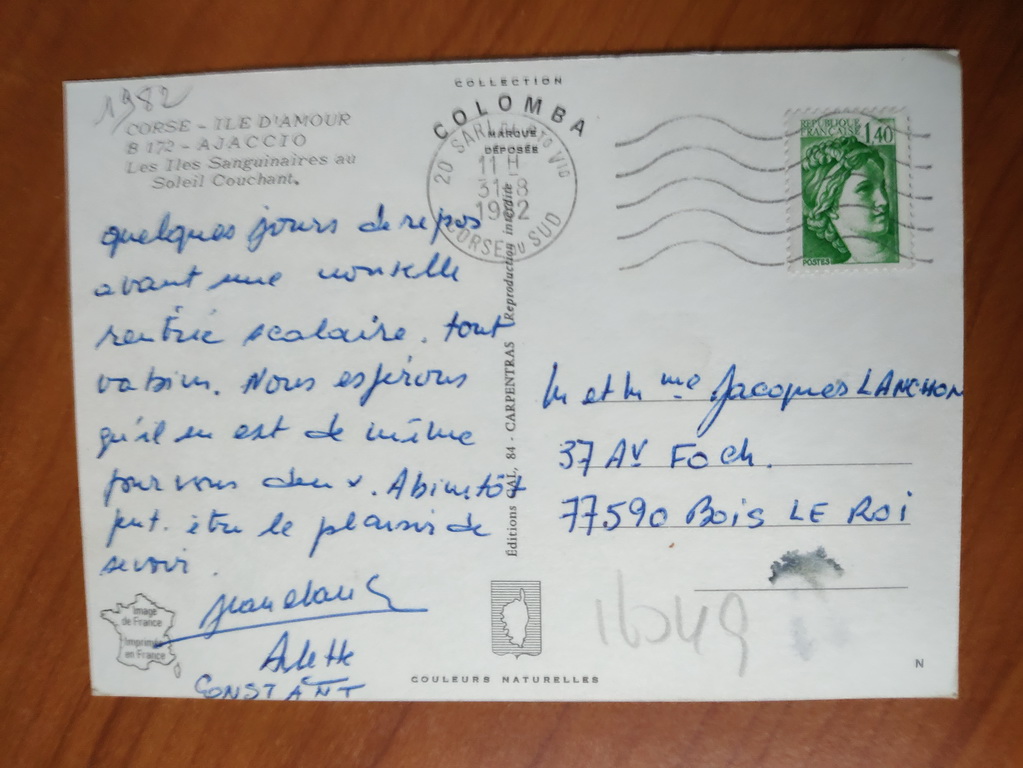 1982
COLLECTION
COLOMBA
MARQUE
DÉPOSÉE
CORSE - ILE D'AMOUR
B 172 - AJACCIO
Les Iles Sanguinaires au
Soleil Couchant.
11 H
31-8
1982
CORSE DU SUD
REPUBLIQUE
FRANÇAISE
1,40
POSTES
quelques jours de repos
avant une nouvelle
rentrée scolaire. tout
va bien. Nous espérons
qu'il en est de même
pour vous deux. A bientôt
peut. être le plaisir de
se voir.
Jean claude
Arlette
CONSTANT
Éditions GAL, 84 - CARPENTRAS Reproduction interdite
M et Mme Jacques LANCHON
37 Av Foch.
77590 Bois LE ROI
16049
Image
de France
Imprimée
en France
COULEURS NATURELLES
N